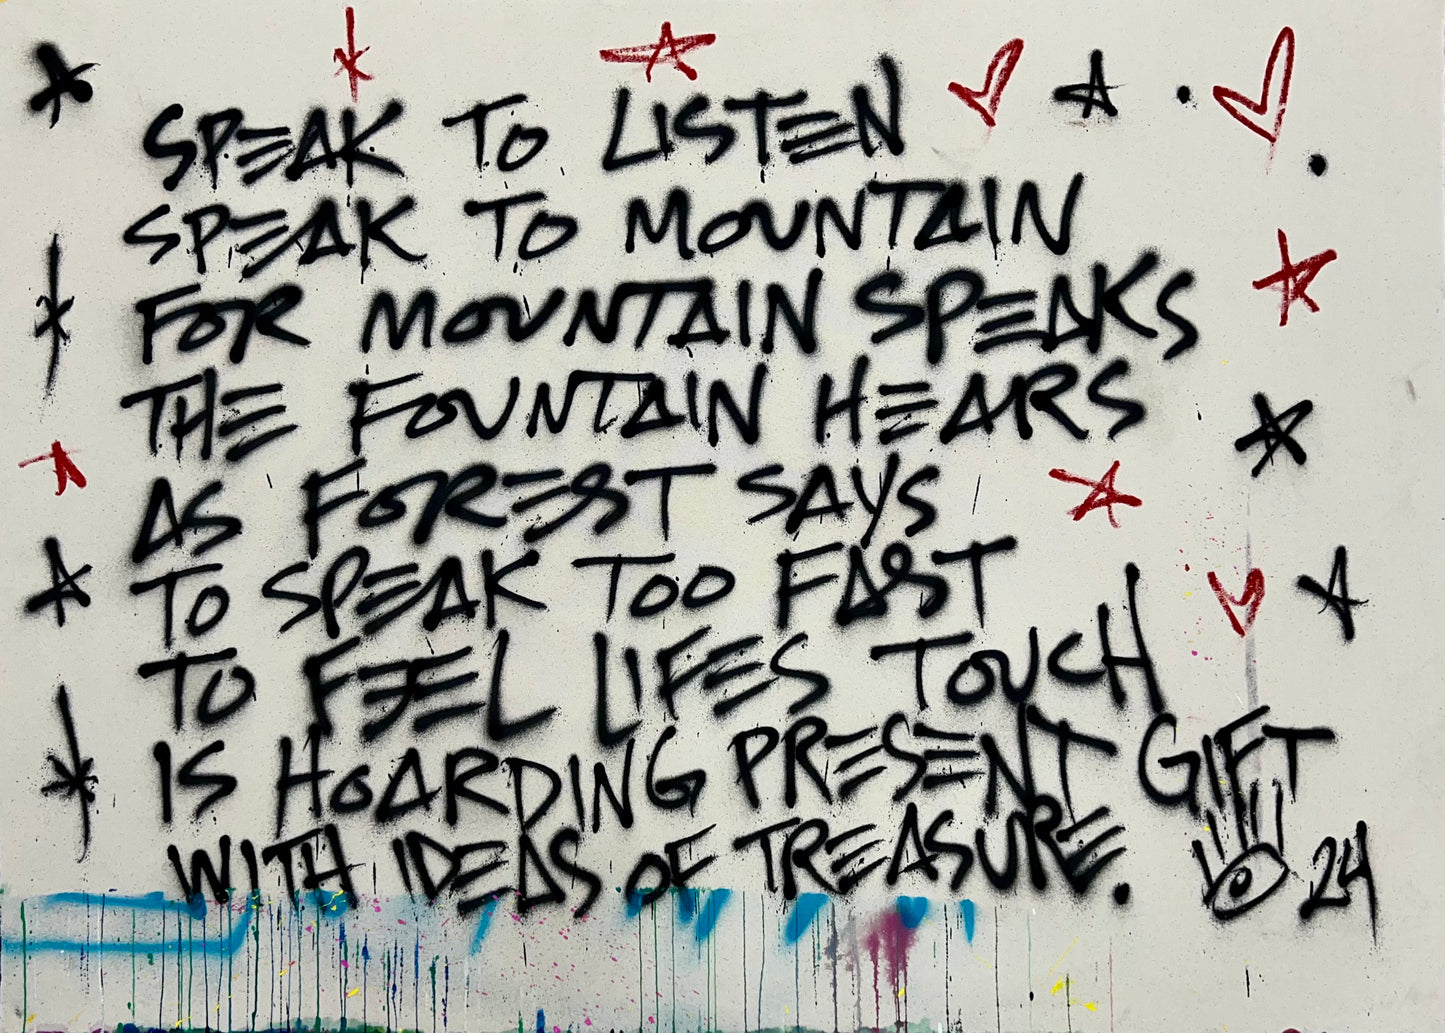 SPEAK TO LISTEN
SPEAK TO MOUNTAIN
FOR MOUNTAIN SPEAKS
THE FOUNTAIN HEARS
AS FOREST SAYS
TO SPEAK TOO FAST
TO FEEL LIFES TOUCH
IS HOARDING PRESENT GIFT
WITH IDEAS OF TREASURE.
24